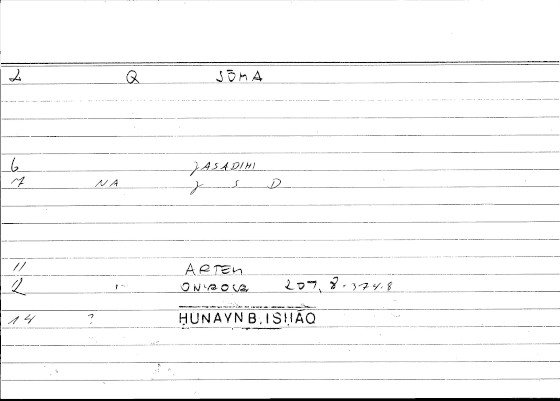 2 Q SŌMA
6 JASADIHI
7 NA J S D
11 ARTEM
2 ONIROCR 207, 8-374.8
14 ? ḤUNAYN B. ISḤĀQ